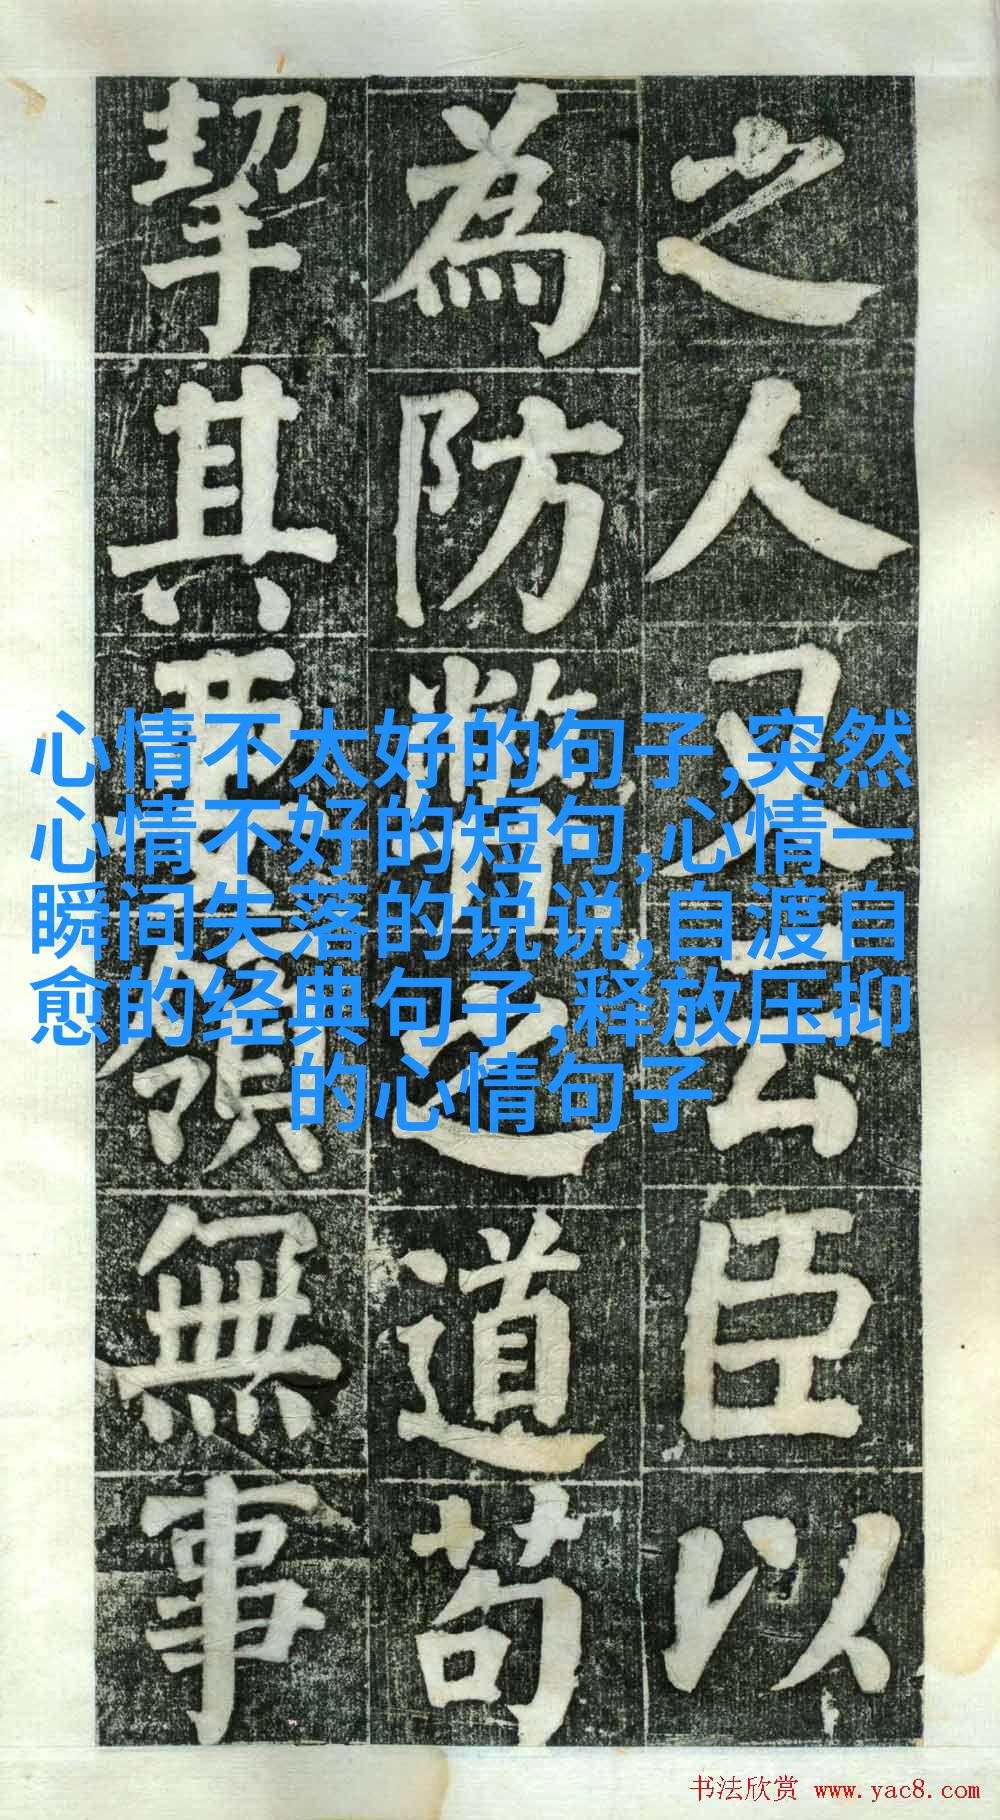 之人又云臣以
為防之道苟
挈其領無事
心情不太好的句子,突然
心情不好的短句,心情一
瞬间失落的说说,自渡自
愈的经典句子,释放压抑
的心情句子
书法欣赏 www.yac8.com